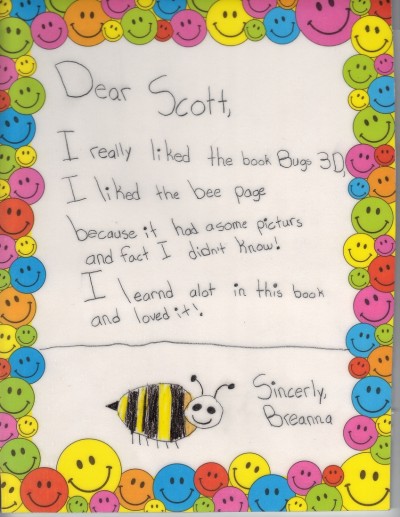 Dear Scott,
I really liked the book Bugs 3D,
I liked the bee page
because it had asome picturs
and fact I didnt know!
I learnd alot in this book
and loved it!
Sincerly,
Breanna